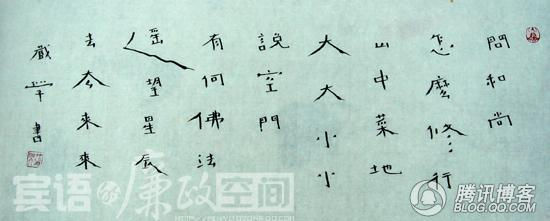 問和尚
怎麼修行
山中菜地
大大小小
說空門
有何佛法
遙望星辰
去去來來
書
宾语的廉政空间
腾讯博客
BLOG.QQ.COM